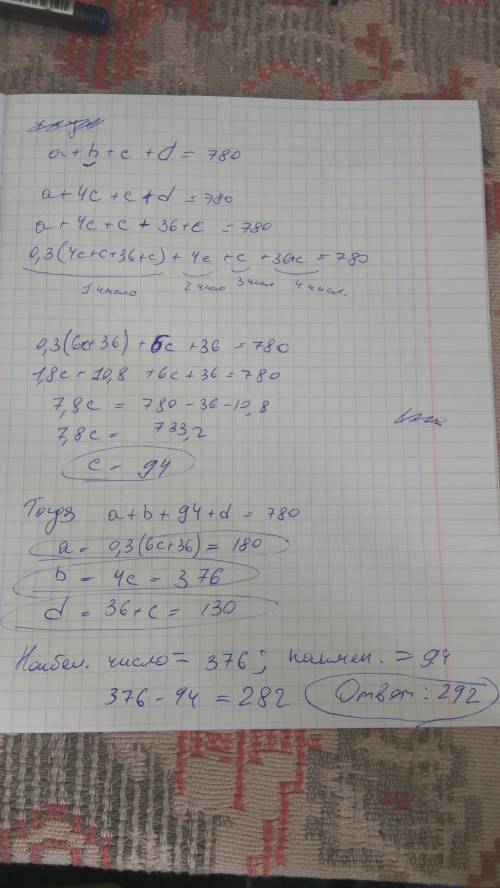 a + b + c + d = 780
a + 4c + c + d = 780
a + 4c + c + 36 + c = 780
0,3(4c+c+36+c) + 4c + c + 36+c = 780
1 число 2 число 3 числ 4 числ.
0,3(6c+36) + 6c + 36 = 780
1,8c + 10,8 + 6c + 36 = 780
7,8c = 780 - 36 - 10,8
7,8c = 733,2
c = 94
Тогда a + b + 94 + d = 780
a = 0,3(6c+36) = 180
b = 4c = 376
d = 36 + c = 130
Наибол. число = 376; наимен. = 94
376 - 94 = 282 Ответ: 292